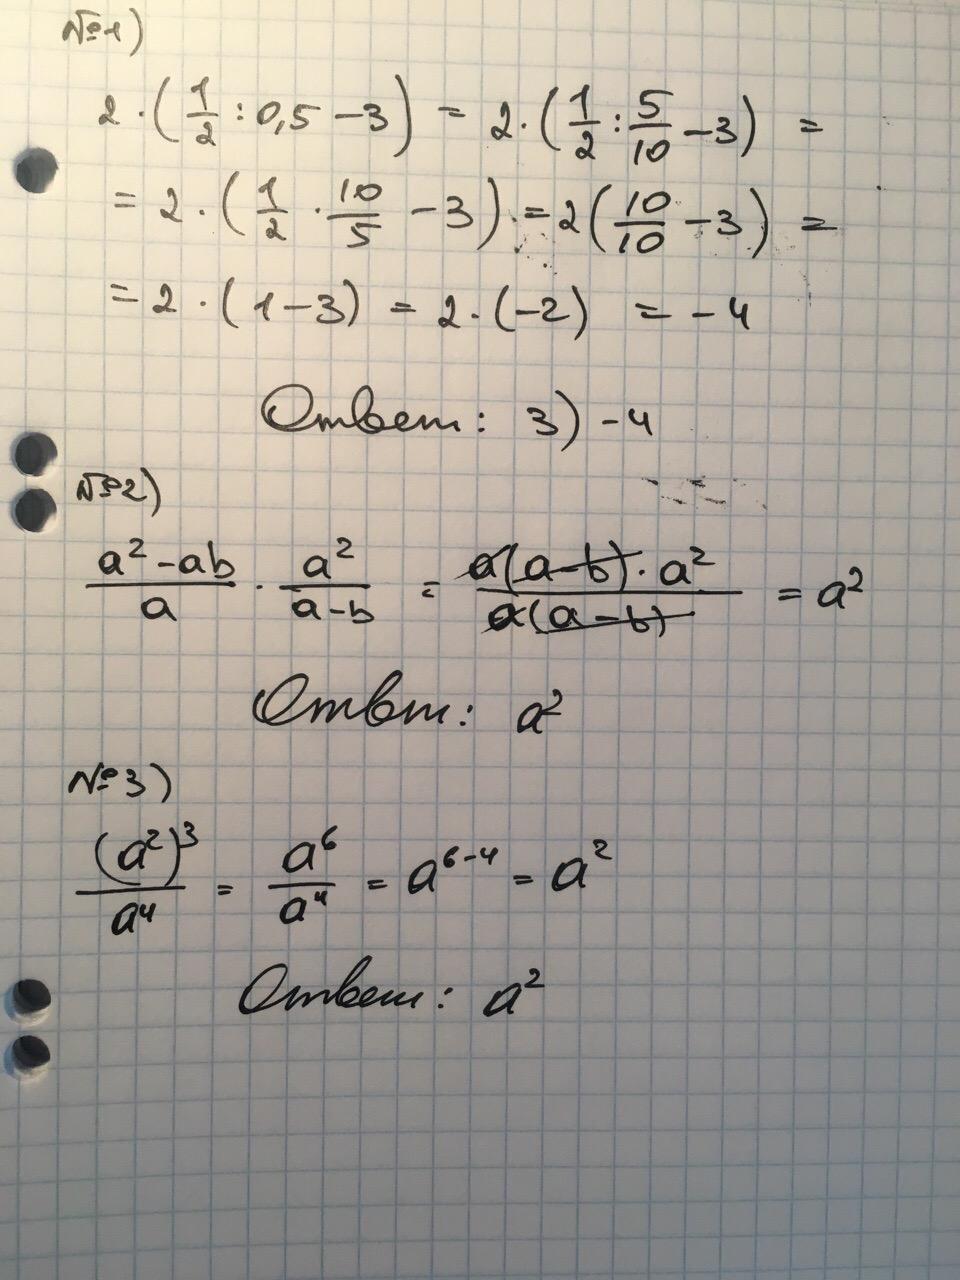 №1)
2 · (1/2 : 0,5 − 3) = 2 · (1/2 : 5/10 − 3) =
= 2 · (1/2 · 10/5 − 3) = 2(10/10 − 3) =
= 2 · (1 − 3) = 2 · (−2) = −4
Ответ: 3) −4
№2)
(a² − ab)/a · a²/(a − b) = (a(a − b) · a²)/(a(a − b)) = a²
Ответ: a²
№3)
(a²)³/a⁴ = a⁶/a⁴ = a⁶⁻⁴ = a²
Ответ: a²